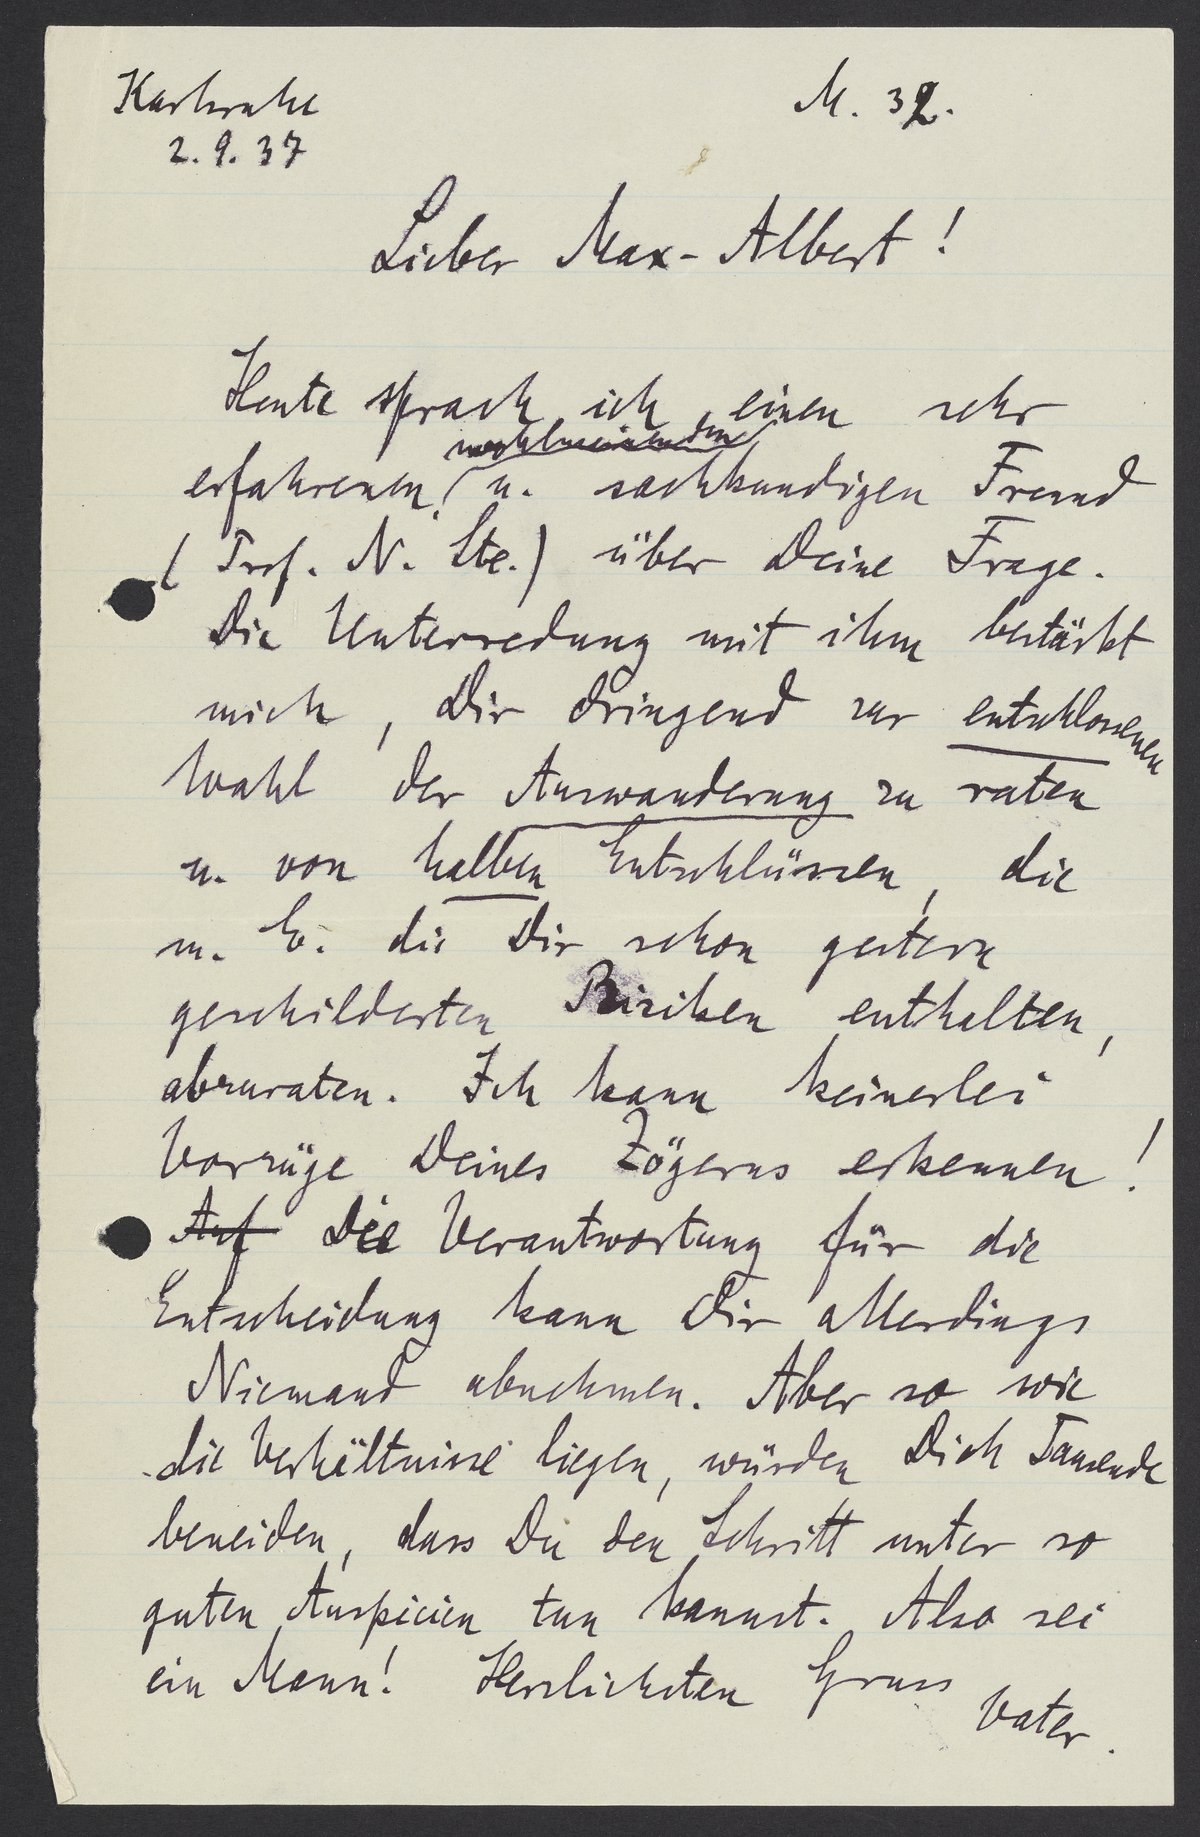 Karlsruhe
2.9.37
M. 32.
Lieber Max-Albert!
Heute sprach ich einen sehr
wohlmeinenden
erfahrenen, u. sachkundigen Freund
(Prof. N. Ste.) über Deine Frage.
Die Unterredung mit ihm bestärkt
mich, Dir dringend zur entschlossenen
Wahl der Auswanderung zu raten
u. von halben Entschlüssen, die
m. E. die Dir schon gestern
geschilderten Risiken enthalten,
abzuraten. Ich kann keinerlei
Vorzüge Deines Zögerns erkennen!
Auf Die Verantwortung für die
Entscheidung kann Dir allerdings
Niemand abnehmen. Aber so wie
die Verhältnisse liegen, würden Dich Tausende
beneiden, dass Du den Schritt unter so
guten Auspicien tun kannst. Also sei
ein Mann! Herzlichsten Gruss
Vater.